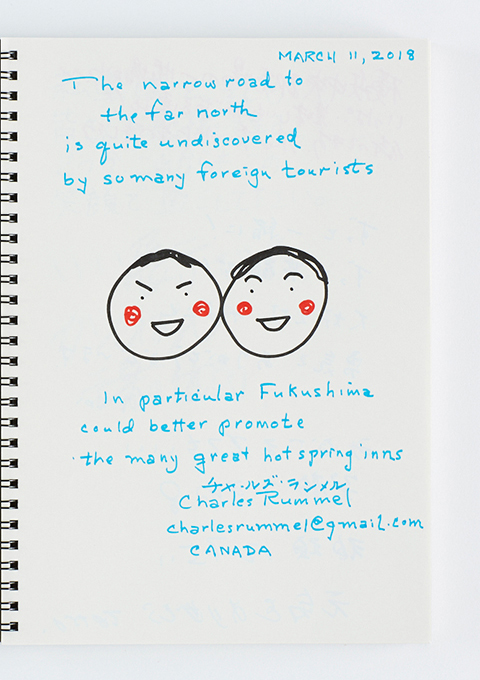 MARCH 11, 2018
The narrow road to
the far north
is quite undiscovered
by so many foreign tourists
In particular Fukushima
could better promote
the many great hot spring inns
チャールズ・ランメル
Charles Rummel
charlesrummel@gmail.com
CANADA